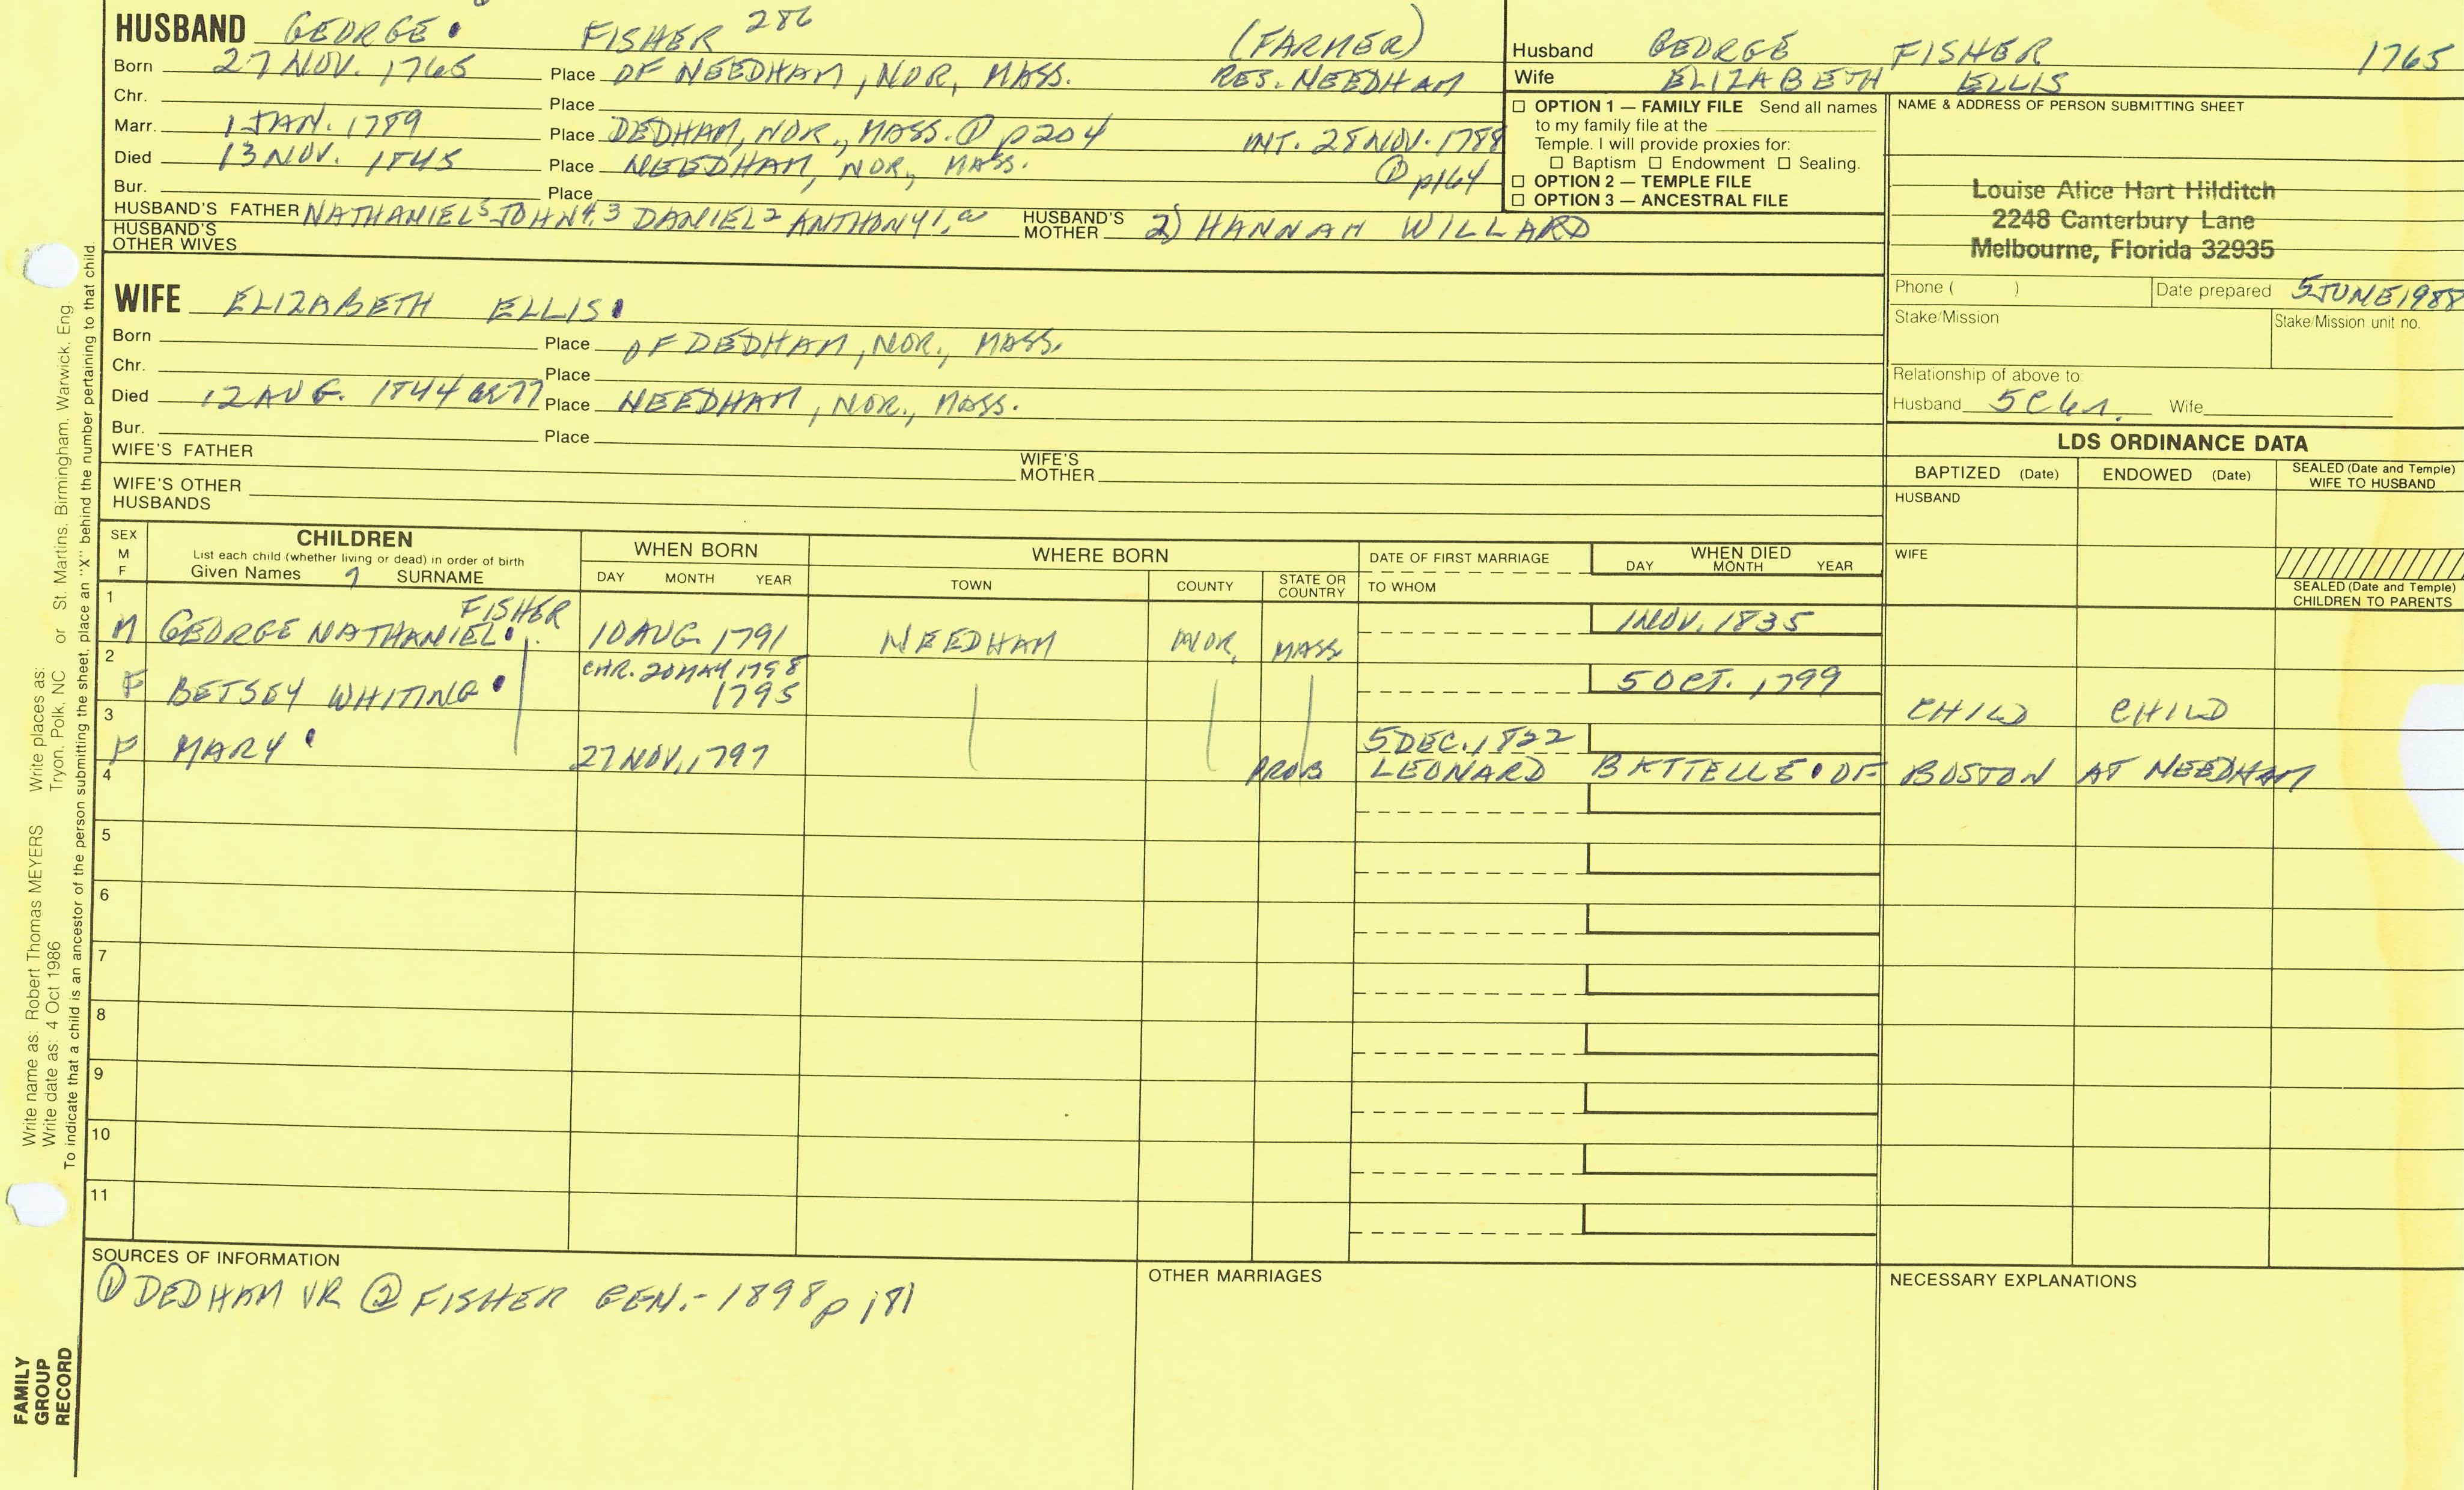 HUSBAND GEORGE FISHER 286 (FARMER)
Born 27 NOV. 1765 Place OF NEEDHAM, NOR, MASS. RES. NEEDHAM
Chr. Place
Marr. 1 JAN. 1789 Place DEDHAM, NOR., MASS. ① p204 INT. 28 NOV. 1788
Died 13 NOV. 1845 Place NEEDHAM, NOR., MASS. ① p164
Bur. Place
HUSBAND'S FATHER NATHANIEL5 JOHN4,3 DANIEL2 ANTHONY1, HUSBAND'S MOTHER 2) HANNAH WILLARD
HUSBAND'S OTHER WIVES
Husband GEORGE FISHER 1765
Wife ELIZABETH ELLIS
☐ OPTION 1 — FAMILY FILE Send all names
to my family file at the
Temple. I will provide proxies for:
☐ Baptism ☐ Endowment ☐ Sealing.
☐ OPTION 2 — TEMPLE FILE
☐ OPTION 3 — ANCESTRAL FILE
NAME & ADDRESS OF PERSON SUBMITTING SHEET
Louise Alice Hart Hilditch
2248 Canterbury Lane
Melbourne, Florida 32935
Phone ( ) Date prepared 5 JUNE 1988
Stake/Mission Stake/Mission unit no.
Relationship of above to:
Husband 5C6r. Wife
WIFE ELIZABETH ELLIS
Born Place OF DEDHAM, NOR., MASS.
Chr. Place
Died 12 AUG. 1844 77 Place NEEDHAM, NOR., MASS.
Bur. Place
WIFE'S FATHER WIFE'S MOTHER
WIFE'S OTHER HUSBANDS
LDS ORDINANCE DATA
BAPTIZED (Date) ENDOWED (Date) SEALED (Date and Temple) WIFE TO HUSBAND
HUSBAND
WIFE
SEALED (Date and Temple) CHILDREN TO PARENTS
SEX M F
CHILDREN
List each child (whether living or dead) in order of birth
Given Names SURNAME
WHEN BORN
DAY MONTH YEAR
WHERE BORN
TOWN COUNTY STATE OR COUNTRY
DATE OF FIRST MARRIAGE
TO WHOM
WHEN DIED
DAY MONTH YEAR
1 FISHER 1 NOV. 1835
M GEORGE NATHANIEL 10 AUG. 1791 NEEDHAM NOR. MASS
2 CHR. 20 MAY 1798 5 OCT. 1799
F BETSEY WHITING 1795 CHILD CHILD
3 5 DEC. 1822
F MARY 27 NOV. 1797 PROB LEONARD BATTELLE OF BOSTON AT NEEDHAM
4
5
6
7
8
9
10
11
SOURCES OF INFORMATION
① DEDHAM VR ② FISHER GEN.- 1898 p 181
OTHER MARRIAGES
NECESSARY EXPLANATIONS
Write name as: Robert Thomas MEYERS Write places as: Tryon, Polk, NC or St. Martins, Birmingham, Warwick, Eng
Write date as: 4 Oct 1986
To indicate that a child is an ancestor of the person submitting the sheet, place an "X" behind the number pertaining to that child.
FAMILY
GROUP
RECORD